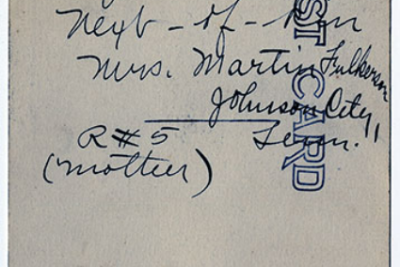 Next-of-kin
Mrs. Martin Fulkerson
Johnson City,
R#5 Tenn.
(mother)
ST CARD